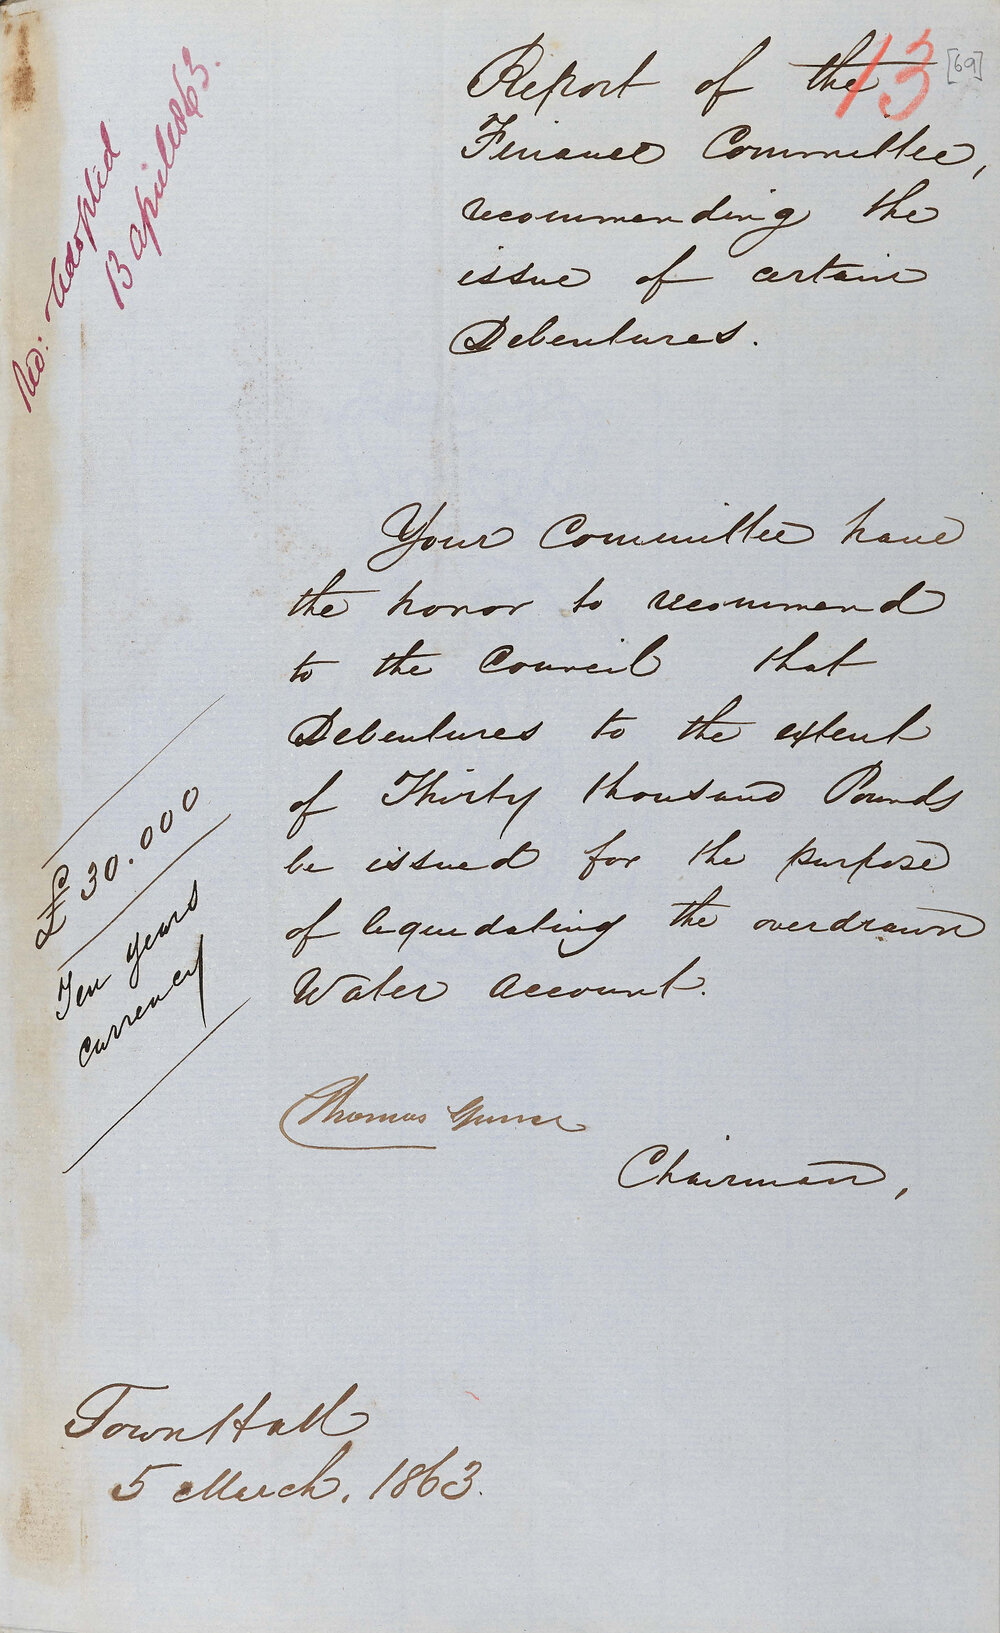 13
[69]
Report of the
Finance Committee,
recommending the
issue of certain
Debentures.
adopted
13 April 1863.
Your Committee have
the honor to recommend
to the Council that
Debentures to the extent
of Thirty thousand Pounds
be issued for the purpose
of liquidating the overdrawn
Water Account.
£30.000
Ten years
currency
Thomas
Chairman,
Town Hall
5 March. 1863.